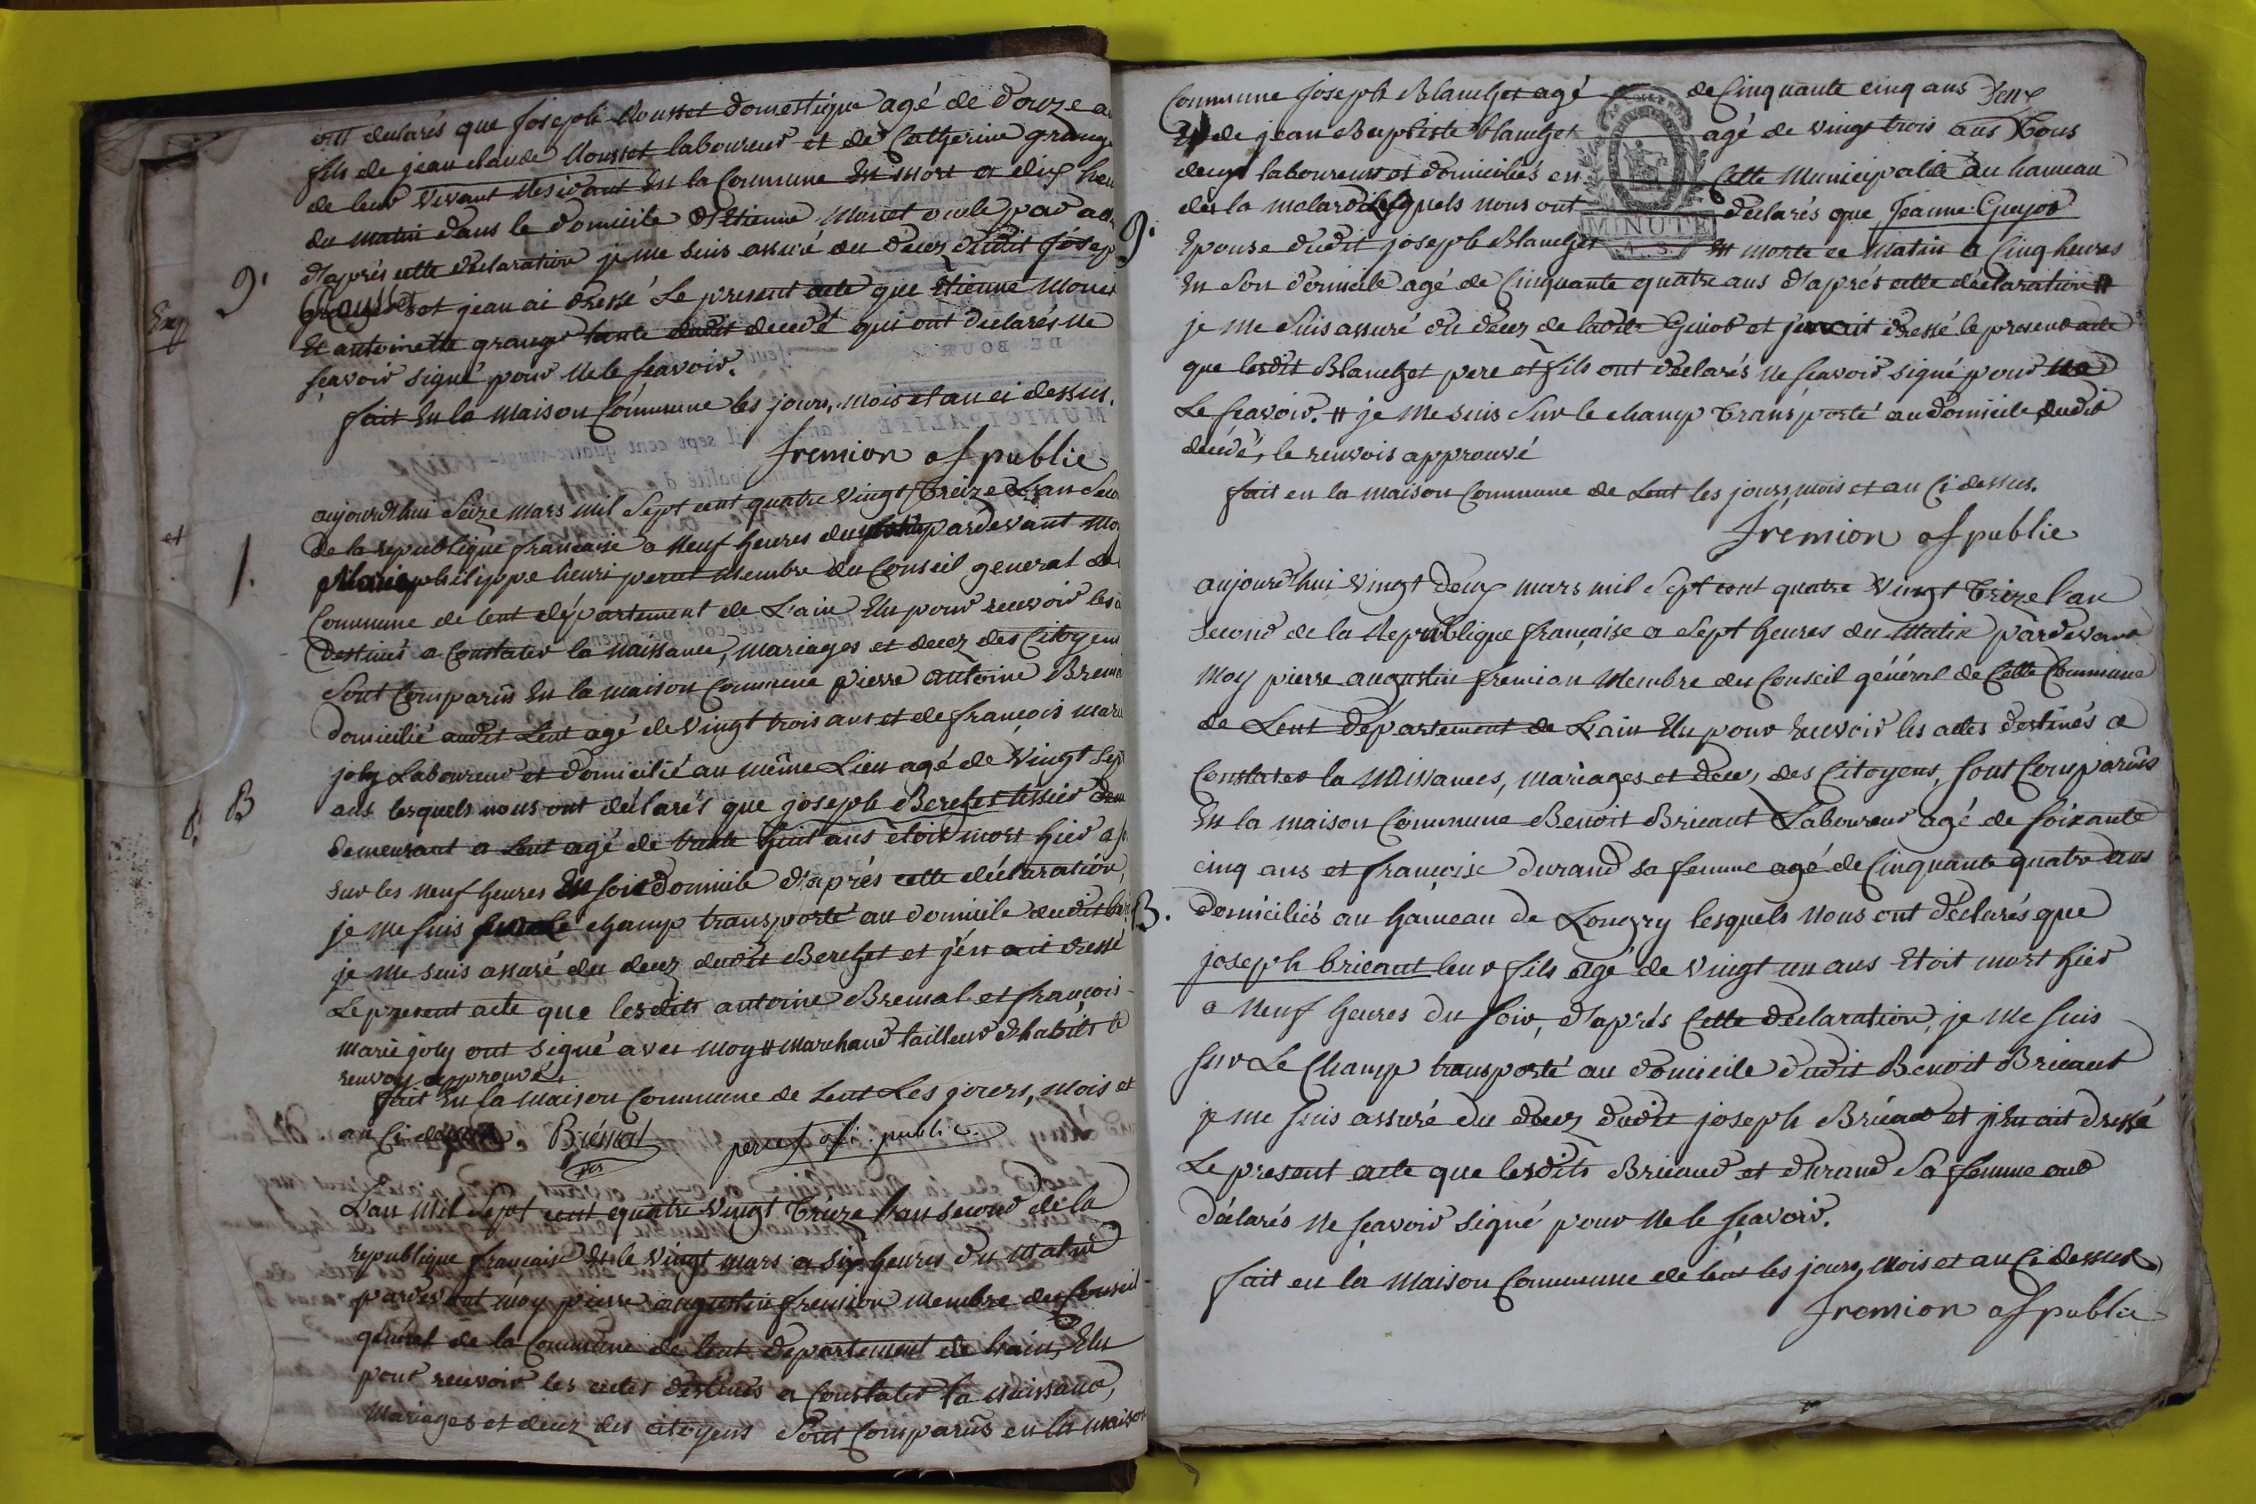 ont declarés que Joseph Rousset domestique agé de douze
fils de jean claude Rousset laboureur et de Catherine grange
de leur vivant Residant En la Commune Est mort a dix heu
du matin dans le domicile d'Etienne Monet oncle par
d'aprés cette déclaration je me suis assuré du decez dudit joseph
Rousset et jean ai dressé Le present acte que Etienne Monet
Et antoinette grange tante dudit decedé qui ont declarés Ne
sçavoir signé pour Ne le sçavoir.
fait En la Maison Commune les jours, mois et an ci dessus.
fremion of public
9.
aujourd'hui Seize mars mil Sept cent quatre vingt treize L'an Seco
de la republique francaise a Neuf heures du pardevant Moy
philippe henri perret Membre du Conseil general de
Commune de lent département de L'ain Elu pour recevoir les
destinés a Constater la Naissance, mariages et decez des Citoyens
Sont Comparûs En la maison Commune pierre antoine Bremal
domicilié audit Lent agé de Vingt trois ans et de françois marie
joly Laboureur et domicilié au même Lieu agé de Vingt Sept
ans lesquels nous ont déclarés que joseph Berchet tissier
demeurant a Lent agé de trente huit ans étoit mort hier a
sur les neuf heures En son domicile d'aprés cette déclaration,
je me suis sur le champ transporté au domicile dudit
je me suis assuré du decez dudit Berchet et j'en ait dressé
Le present acte que lesdits antoine Bremal et françois
marie joly ont signé avec moy # marchand tailleur d'habits le
renvoy approuvé
fait En la Maison Commune de Lent Les jours, mois et
an Ci Brémal perret ofi. public.
L'an Mil Sept cent quatre Vingt treize l'an Second de la
republique française Et le Vingt mars a six heures du Matin
pardevant moy pierre augustin fremion membre du Conseil
général de la Commune de lent departement de L'ain, Elu
pour recevoir les actes destinés a Constater la Naissance,
Mariages et decez des citoyens Sont Comparûs en la maison
Commune joseph Blanchet agé de Cinquante cinq ans
Et de jean Baptiste blanchet agé de vingt trois ans Tous
deux laboureurs et domiciliés en Cette Municipalité au hameau
de la molard Lesquels nous ont déclarés que Jeanne Guyot
Epouse dudit joseph Blanchet Est morte ce Matin a Cinq heures
MINUTE
En Son domicile agé de Cinquante quatre ans d'aprés cette déclaration #
je me suis assuré du decez de ladite Guiot et j'en ait dressé le present acte
que lesdit Blanchet pere et fils ont déclarés Ne sçavoir signé pour Ne
Le sçavoir. # je me suis Sur le champ Transporté au domicile dudit
decédé, le renvois approuvé
fait en la maison Commune de Lent les jours, mois et an Ci dessus.
fremion of public
aujourd'hui vingt deux mars mil Sept cent quatre Vingt treize l'an
second de la Republique française a Sept heures du Matin pardevant
Moy pierre augustin fremion Membre du Conseil général de Cette Commune
de Lent département de L'ain Elu pour recevoir les actes destinés a
Constater la Naissances, mariages et decez, des Citoyens, sont Comparûs
En la maison Commune Benoit Bricaut Laboureur agé de soixante
cinq ans et françoise durand sa femme agé de Cinquante quatre ans
B. domiciliés au hameau de Longry lesquels Nous ont déclarés que
joseph bricaut leur fils agé de vingt un ans Etoit mort hier
a Neuf heures du soir, d'aprés Cette déclaration, je Me suis
sur Le Champ transporté au domicile dudit Benoit Bricaut
je me suis assuré du decez dudit joseph Bricaut et j'en ait dressé
Le present acte que lesdits Bricaud et durand Sa femme ont
déclarés Ne sçavoir signé pour Ne le sçavoir.
fait en la Maison Commune de lent les jours, Mois et an Ci dessus
fremion of public